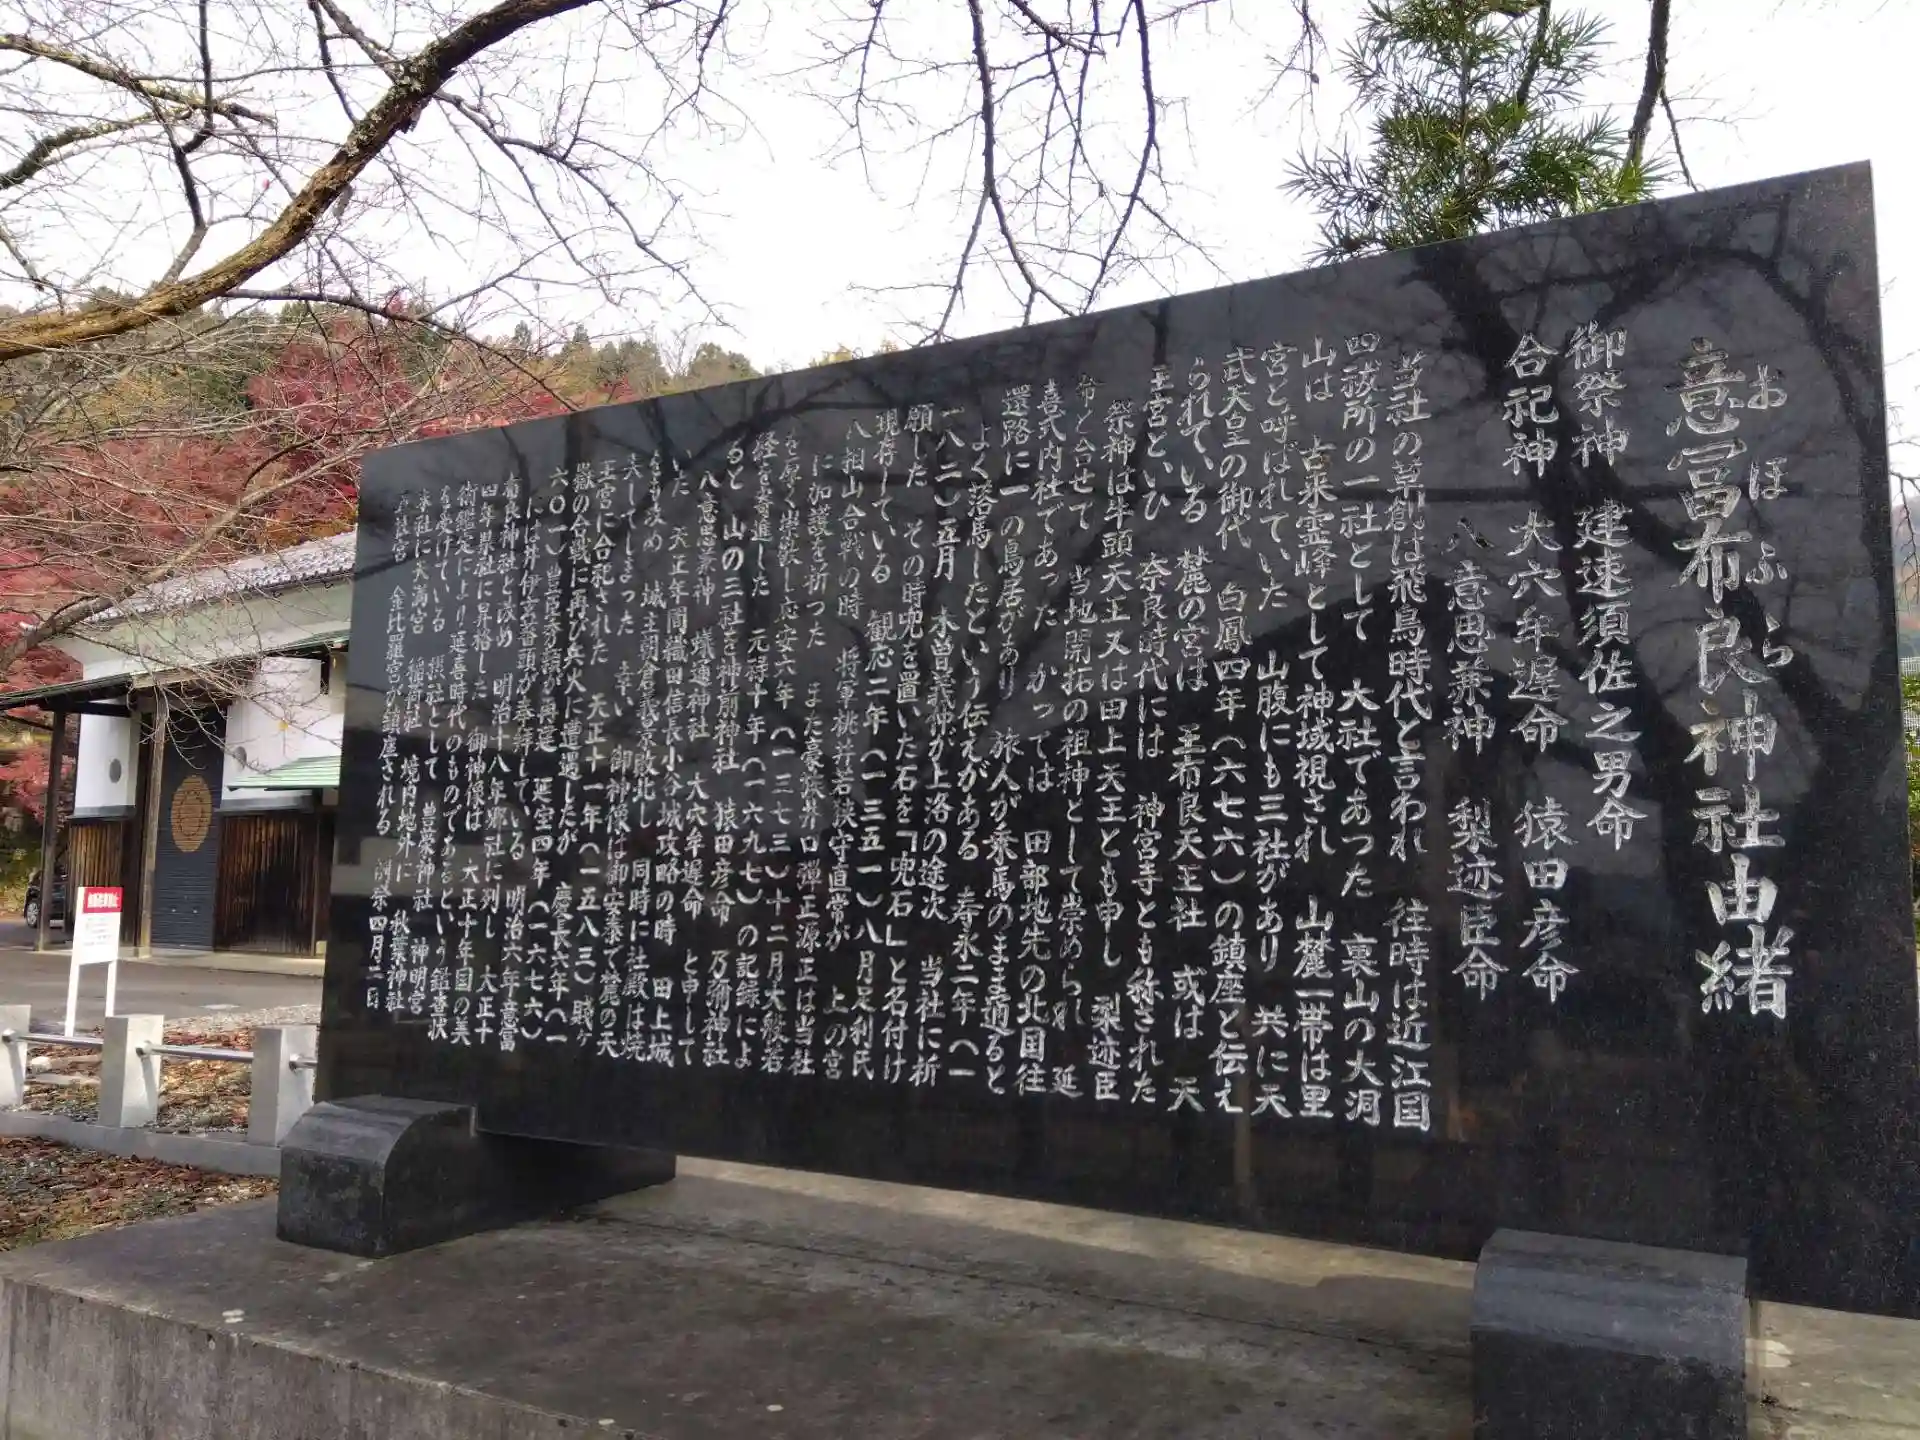 おおほふら
意冨布良神社由緒
御祭神 建速須佐之男命
合祀神 大穴牟遅命 猿田彦命
八意思兼神 梨迹臣命
当社の草創は飛鳥時代と言われ 往時は近江国
四祓所の一社として 大社であつた 裏山の大洞
山は 古来霊峰として神域視され 山麓一帯は里
宮と呼ばれていた 山腹にも三社があり 共に天
武天皇の御代 白鳳四年(六七六)の鎮座と伝え
られている 麓の宮は 王布良天王社 或は 天
王宮といひ 奈良時代には 神宮寺とも称された
祭神は牛頭天王又は田上天王とも申し 梨迹臣
命と合せて 当地開拓の祖神として崇められ 延
喜式内社であった かつては 田部地先の北国往
還路に一の鳥居があり 旅人が乗馬のまま通ると
よく落馬したという伝えがある 寿永二年(一
一八二)五月 木曽義仲が上洛の途次 当社に祈
願した その時兜を置いた石を「兜石」と名付け
現存している 観応二年(一三五一)八月足利氏
八相山合戦の時 将軍桃井若狭守直常が 上の宮
に加護を祈つた また豪族井口弾正源正は当社
を厚く崇敬し応安六年(一三七三)十二月大般若
経を寄進した 元禄十年(一六九七)の記録によ
ると 山の三社を神前神社 猿田彦命 乃彌神社
八意思兼神 蟻通神社 大穴牟遅命 と申して
いた 天正年間織田信長小谷城攻略の時 田上城
をも攻め 城主朝倉義景敗北し 同時に社殿は焼
失してしまった 幸い 御神像は御安泰で麓の天
王宮に合祀された 天正十一年(一五八三)賤ヶ
嶽の合戦に再び兵火に遭遇したが 慶長六年(一
六〇一)豊臣秀頼が再建 延宝四年(一六七六)
には井伊玄蕃頭が奉拝している 明治六年意冨
布良神社と改め 明治十八年郷社に列し 大正十
四年県社に昇格した 御神像は 大正十年国の美
術鑑定により延喜時代のものであるという鑑査状
を受けている 摂社として 豊栄神社 神明宮
末社に天満宮 稲荷社 境内地外に 秋葉神社
戸社宮 金比羅宮が鎮座される 例祭四月二日